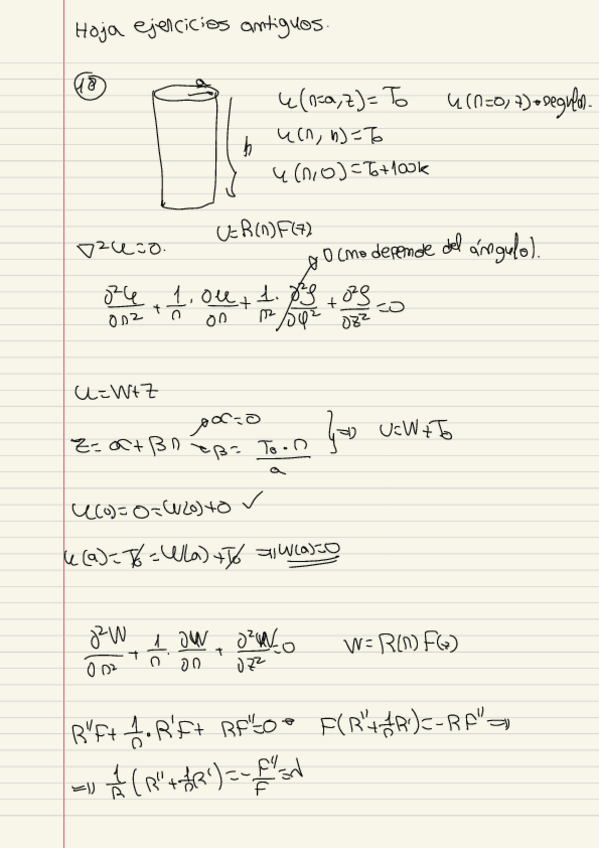 Hoja ejercicios antiguos.
18
a
u(r=a,z)=T₀ u(r=0,z)→regular.
h
u(r,h)=T₀
u(r,0)=T₀+100k
U=R(r)F(z)
∇²u=0.
0 (no depende del ángulo).
∂²u/∂r² + 1/r · ∂u/∂r + 1/r² · ∂²f/∂φ² + ∂²f/∂z² = 0
u=W+Z
Z=α+βr α=0 β=T₀·r/a }⇒ U=W+T₀
u(0)=0=W(0)+0 ✓
u(a)=T₀=W(a)+T₀ ⇒W(a)=0
∂²W/∂r² + 1/r · ∂W/∂r + ∂²W/∂z² = 0 W=R(r)F(z)
R''F+ 1/r · R'F+ RF''=0 → F(R''+1/r R')=-RF'' ⇒
⇒ 1/R (R''+1/r R')=-F''/F=λ